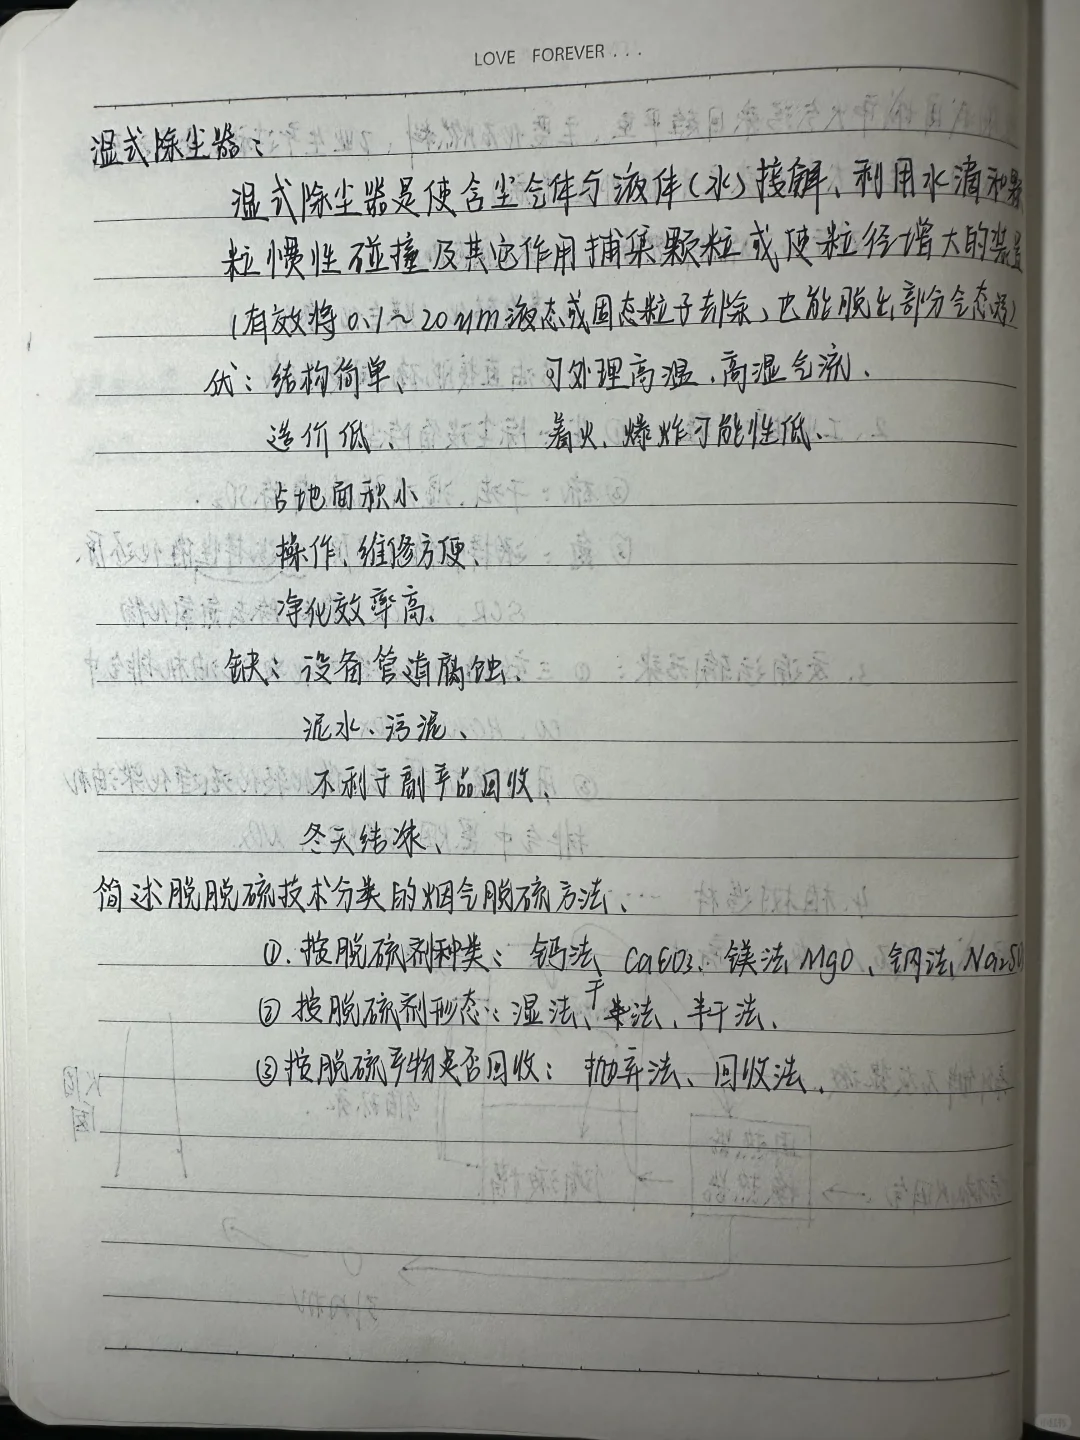 LOVE FOREVER...
湿式除尘器：
湿式除尘器是使含尘气体与液体(水)接触、利用水滴和颗
粒惯性碰撞及其它作用捕集颗粒或使粒径增大的装置
(有效将0.1~20μm液态或固态粒子去除,也能脱出部分气态污)
优：结构简单、 可处理高温、高湿气流、
造价低、 着火、爆炸可能性低、
占地面积小
操作、维修方便、
净化效率高、
缺：设备管道腐蚀、
泥水、污泥、
不利于副产品回收、
冬天结冰、
简述脱脱硫技术分类的烟气脱硫方法、
①.按脱硫剂种类：钙法 CaCO3、镁法MgO、钠法Na2SO
②按脱硫剂形态：湿法、干法、半干法、
③按脱硫产物是否回收：抛弃法、回收法、